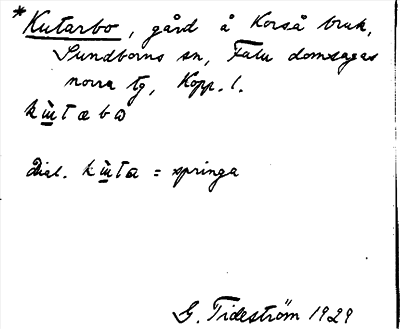 *Kutarbo, gård å Korså bruk,
Sundborns sn, Falu domsagas
norra tg, Kopp. l.
Dial. = springa
G. Tideström 1929